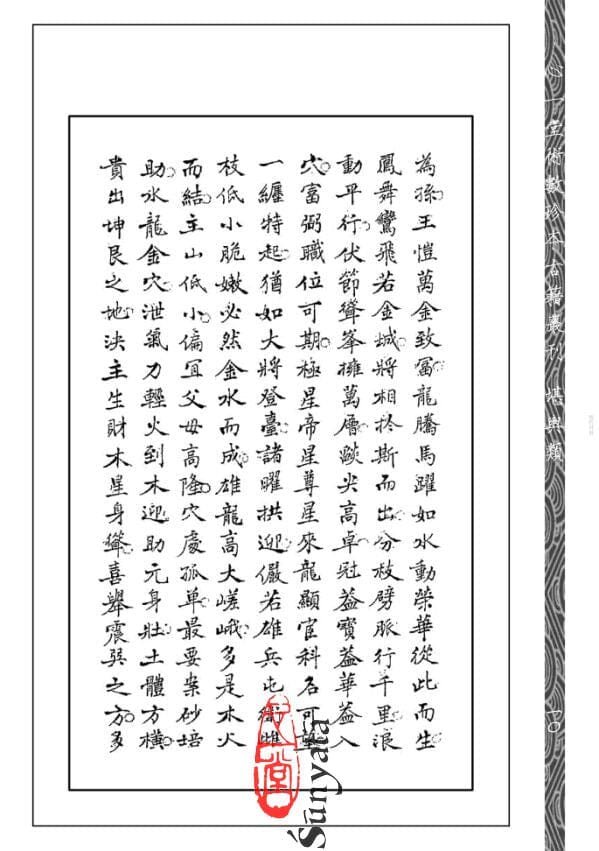 為孫王愷萬金致富龍騰馬躍如水動榮華從此而生
鳳舞鸞飛若金城將相於斯而出分枝劈脈行千里浪
動平行伏節聳峯擁萬層燄尖高卓冠葢寶葢華葢入
穴富弼職位可期極星帝星尊星來龍顯宦科名可望
一纏特起猶如大將登臺諸曜拱迎儼若雄兵屯衛雌
枝低小脆嫩必然金水而成雄龍高大嵯峨多是木火
而結主山低小偏宜父母高隆穴處孤单最要案砂培
助水龍金穴泄氣力輕火到木迎助元身壯土體方橫
貴出坤艮之地决主生財木星身聳喜舉震巽之方多
心一堂術數珍本古籍叢刊 堪輿類
Śūnyatā